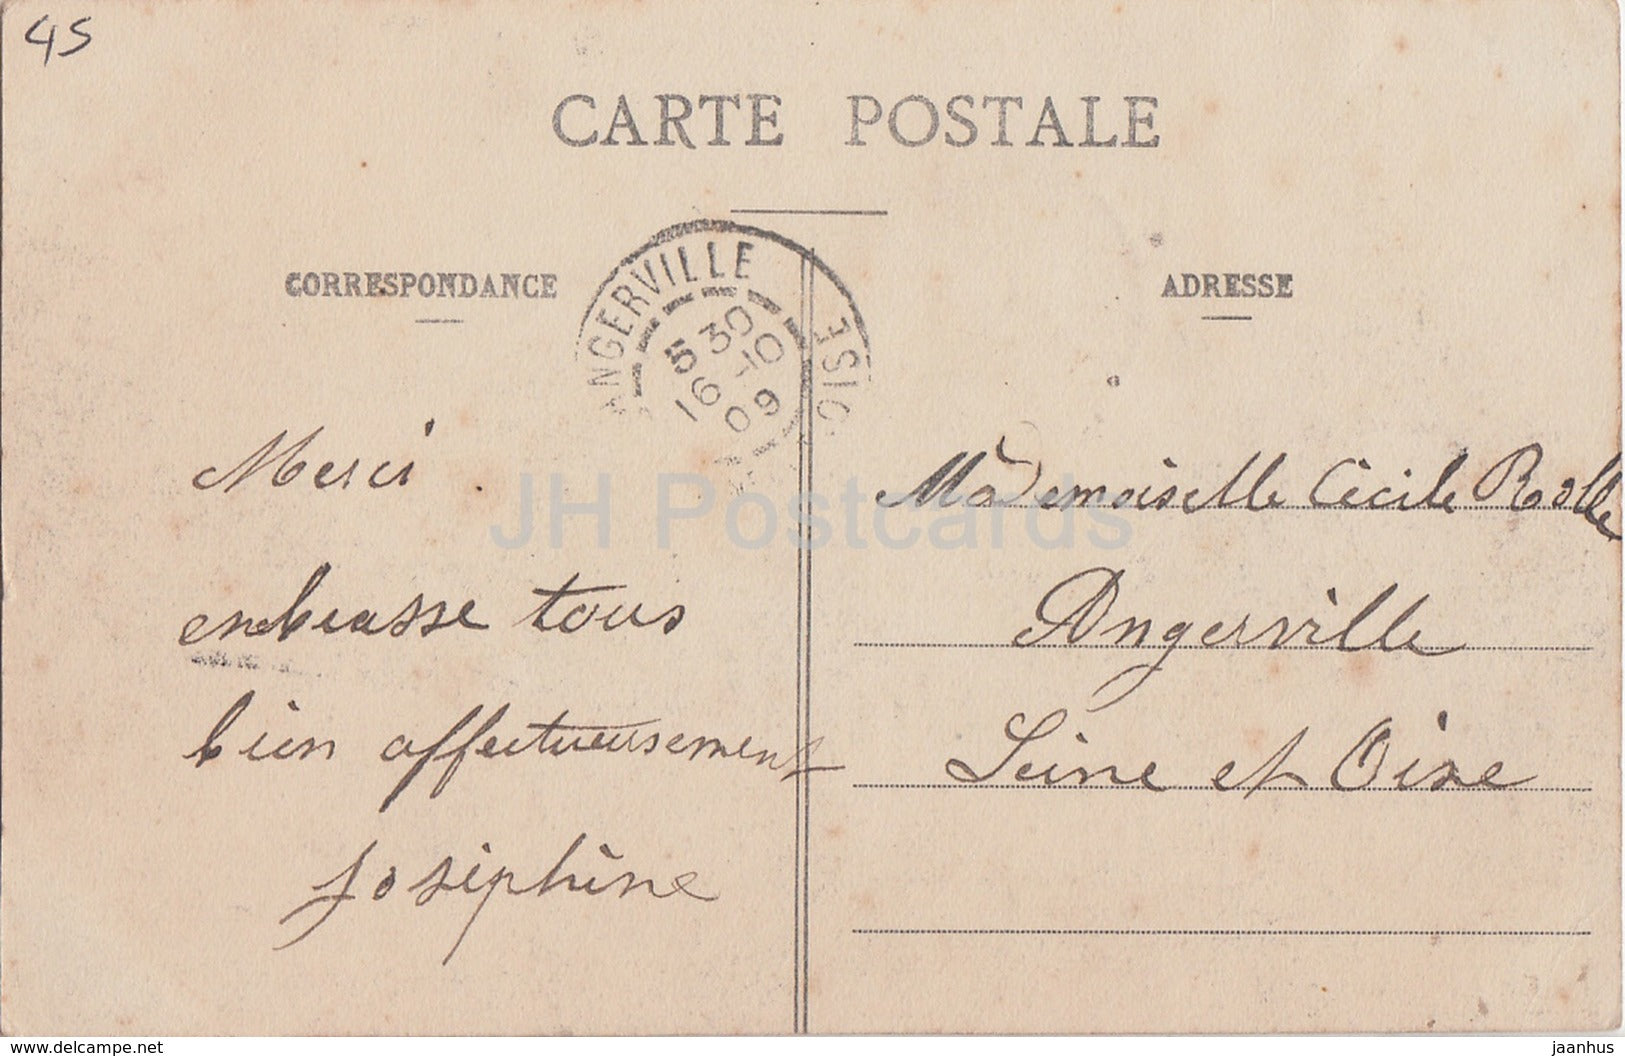 45
CARTE POSTALE
CORRESPONDANCE
ADRESSE
ANGERVILLE
OISE
5 30
16 -10
09
Merci
embrasse tous
bien affectueusement
Joséphine
Mademoiselle Cécile Rolle
Angerville
Seine et Oise
JH Postcards
www.delcampe.net
jaanhus